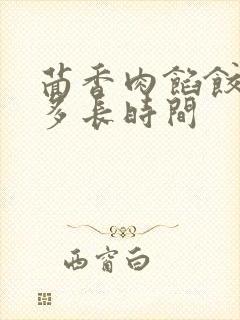 茴香肉餡餃
多長時間
西窗白